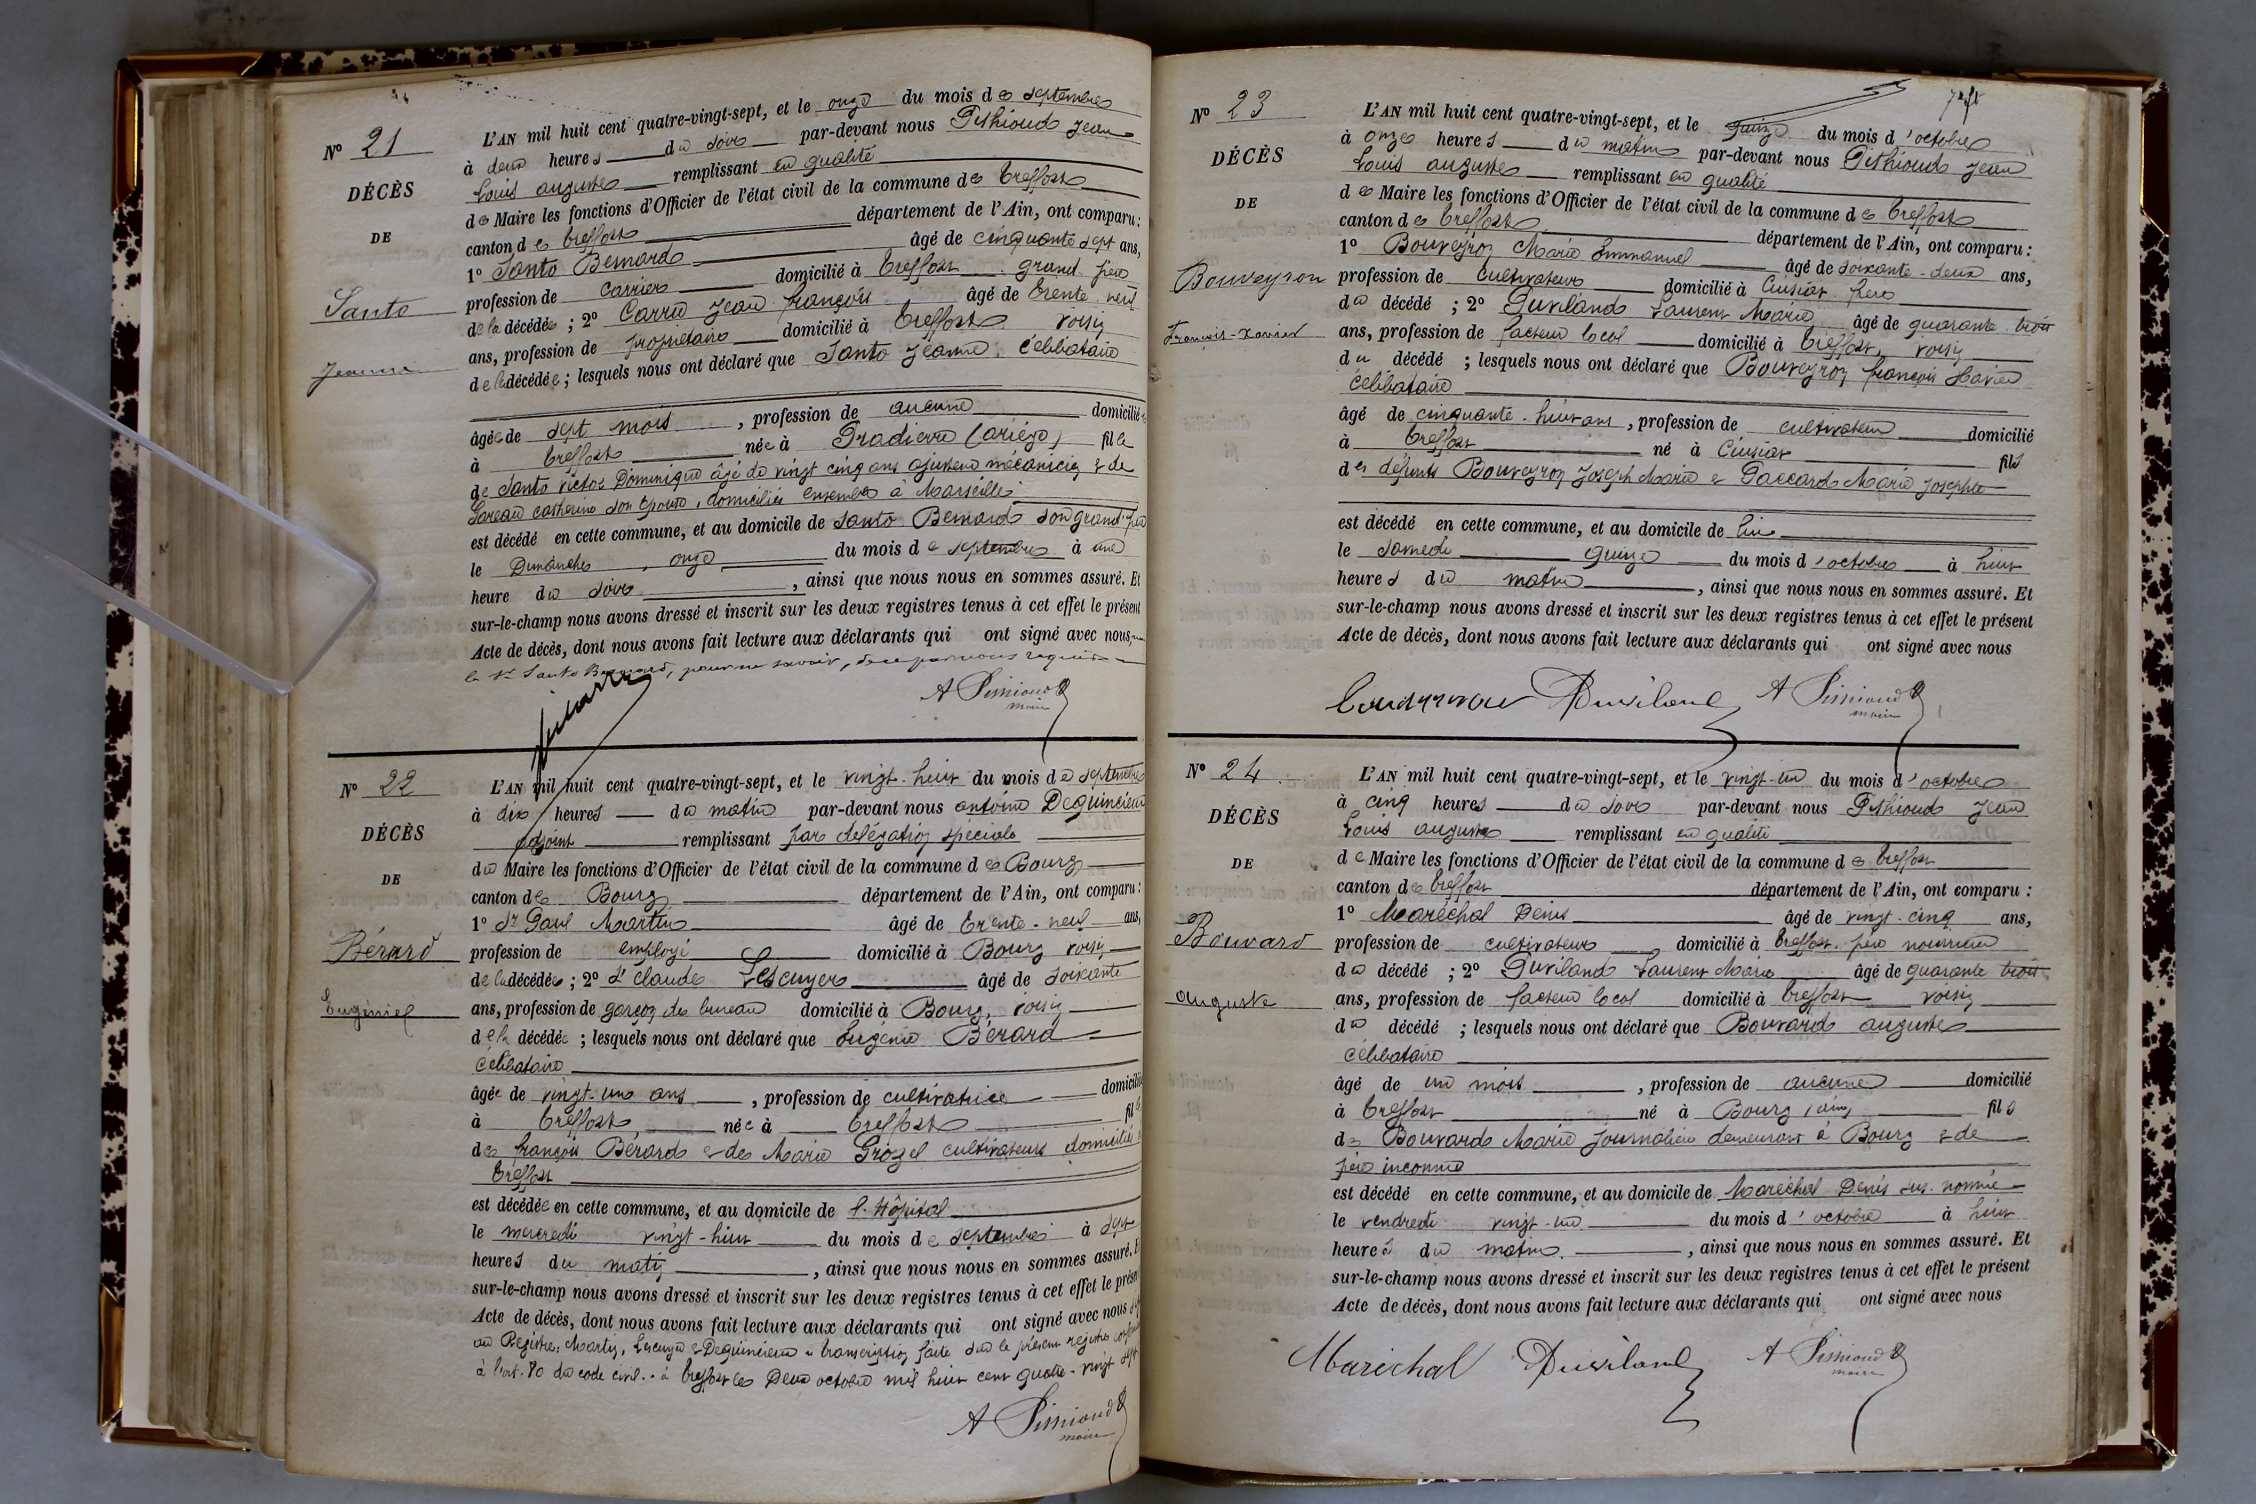 Nº 21
DÉCÈS
DE
Santo
Jeanne
L'AN mil huit cent quatre-vingt-sept, et le onze du mois de septembre
à deux heures du soir par-devant nous Pithioud Jean
Louis auguste remplissant en qualité
de Maire les fonctions d'Officier de l'état civil de la commune de Treffort
canton de Treffort département de l'Ain, ont comparu :
1º Santo Bernard âgé de cinquante sept ans,
profession de carrier domicilié à Treffort grand père
de la décédée ; 2º Carru Jean françois âgé de trente neuf
ans, profession de propriétaire domicilié à Treffort voisin
de la décédée ; lesquels nous ont déclaré que Santo Jeanne, célibataire
âgée de sept mois , profession de aucune domiciliée
à Treffort née à Pradierre (ariége) fille
de Santo victor Dominique âgé de vingt cinq ans ajusteur mécanicien & de
catherine son épouse, domiciliés ensemble à Marseille
est décédé en cette commune, et au domicile de Santo Bernard son grand-père
le Dimanche, onze du mois de septembre à une
heure du soir , ainsi que nous nous en sommes assuré. Et
sur-le-champ nous avons dressé et inscrit sur les deux registres tenus à cet effet le présent
Acte de décès, dont nous avons fait lecture aux déclarants qui ont signé avec nous,
le Sr Santo Bernard, pour ne savoir, de ce par nous requis
A Pithioud
maire
Nº 22
DÉCÈS
DE
Bérard
Eugénie
L'AN mil huit cent quatre-vingt-sept, et le vingt-huit du mois de septembre
à dix heures du matin par-devant nous antoine Deguincieux
adjoint remplissant par délégation spéciale
du Maire les fonctions d'Officier de l'état civil de la commune de Bourg
canton de Bourg département de l'Ain, ont comparu :
1º Sr Paul Martin âgé de trente-neuf ans,
profession de employé domicilié à Bourg voisin
de la décédée ; 2º Sr claude Lescuyer âgé de soixante
ans, profession de garçon de bureau domicilié à Bourg, voisin
de la décédée ; lesquels nous ont déclaré que Eugénie Bérard
célibataire
âgée de vingt-un ans , profession de cultivatrice domiciliée
à Treffort, née à Treffort fille
de françois Bérard & de Marie Grozel cultivateurs domiciliés à
Treffort
est décédée en cette commune, et au domicile de l'Hôpital
le mercredi vingt-huit du mois de septembre à sept
heures du matin , ainsi que nous nous en sommes assuré. Et
sur-le-champ nous avons dressé et inscrit sur les deux registres tenus à cet effet le présent
Acte de décès, dont nous avons fait lecture aux déclarants qui ont signé avec nous
au Registre, Martin, Lescuyer & Deguincieux. transcription faite sur le présent registre
à l'art. 80 du code civil. à Treffort le Deux octobre mil huit cent quatre-vingt sept
A Pithioud
maire
Nº 23
DÉCÈS
DE
Bouveyron
François-Xavier
L'AN mil huit cent quatre-vingt-sept, et le quinze du mois d'octobre
à onze heures du matin par-devant nous Pithioud Jean
Louis auguste remplissant en qualité
de Maire les fonctions d'Officier de l'état civil de la commune de Treffort
canton de Treffort département de l'Ain, ont comparu :
1º Bouveyron Marie Emmanuel âgé de soixante-deux ans,
profession de cultivateur domicilié à Cuisiat frère
du décédé ; 2º Puviland Laurent Marie âgé de quarante trois
ans, profession de facteur local domicilié à Treffort, voisin
du décédé ; lesquels nous ont déclaré que Bouveyron françois Xavier
célibataire
âgé de cinquante-huit ans, profession de cultivateur domicilié
à Treffort né à Cuisiat fils
des défunts Bouveyron Joseph Marie & Paccard Marie Josephte
est décédé en cette commune, et au domicile de lui
le samedi quinze du mois d'octobre à huit
heures du matin , ainsi que nous nous en sommes assuré. Et
sur-le-champ nous avons dressé et inscrit sur les deux registres tenus à cet effet le présent
Acte de décès, dont nous avons fait lecture aux déclarants qui ont signé avec nous
Puviland A Pithioud
maire
Nº 24
DÉCÈS
DE
Bouvard
auguste
L'AN mil huit cent quatre-vingt-sept, et le vingt-un du mois d'octobre
à cinq heures du soir par-devant nous Pithioud Jean
Louis auguste remplissant en qualité
de Maire les fonctions d'Officier de l'état civil de la commune de Treffort
canton de Treffort département de l'Ain, ont comparu :
1º Maréchal Denis âgé de vingt-cinq ans,
profession de cultivateur domicilié à Treffort, père nourricier
du décédé ; 2º Puviland Laurent Marie âgé de quarante trois
ans, profession de facteur local domicilié à Treffort voisin
du décédé ; lesquels nous ont déclaré que Bouvard auguste
célibataire
âgé de un mois , profession de aucune domicilié
à Treffort né à Bourg (ain) fils
de Bouvard Marie journalière demeurant à Bourg & de
père inconnu
est décédé en cette commune, et au domicile de Maréchal Denis sus-nommé
le vendredi vingt-un du mois d'octobre à huit
heures du matin , ainsi que nous nous en sommes assuré. Et
sur-le-champ nous avons dressé et inscrit sur les deux registres tenus à cet effet le présent
Acte de décès, dont nous avons fait lecture aux déclarants qui ont signé avec nous
Maréchal Puviland A Pithioud
maire